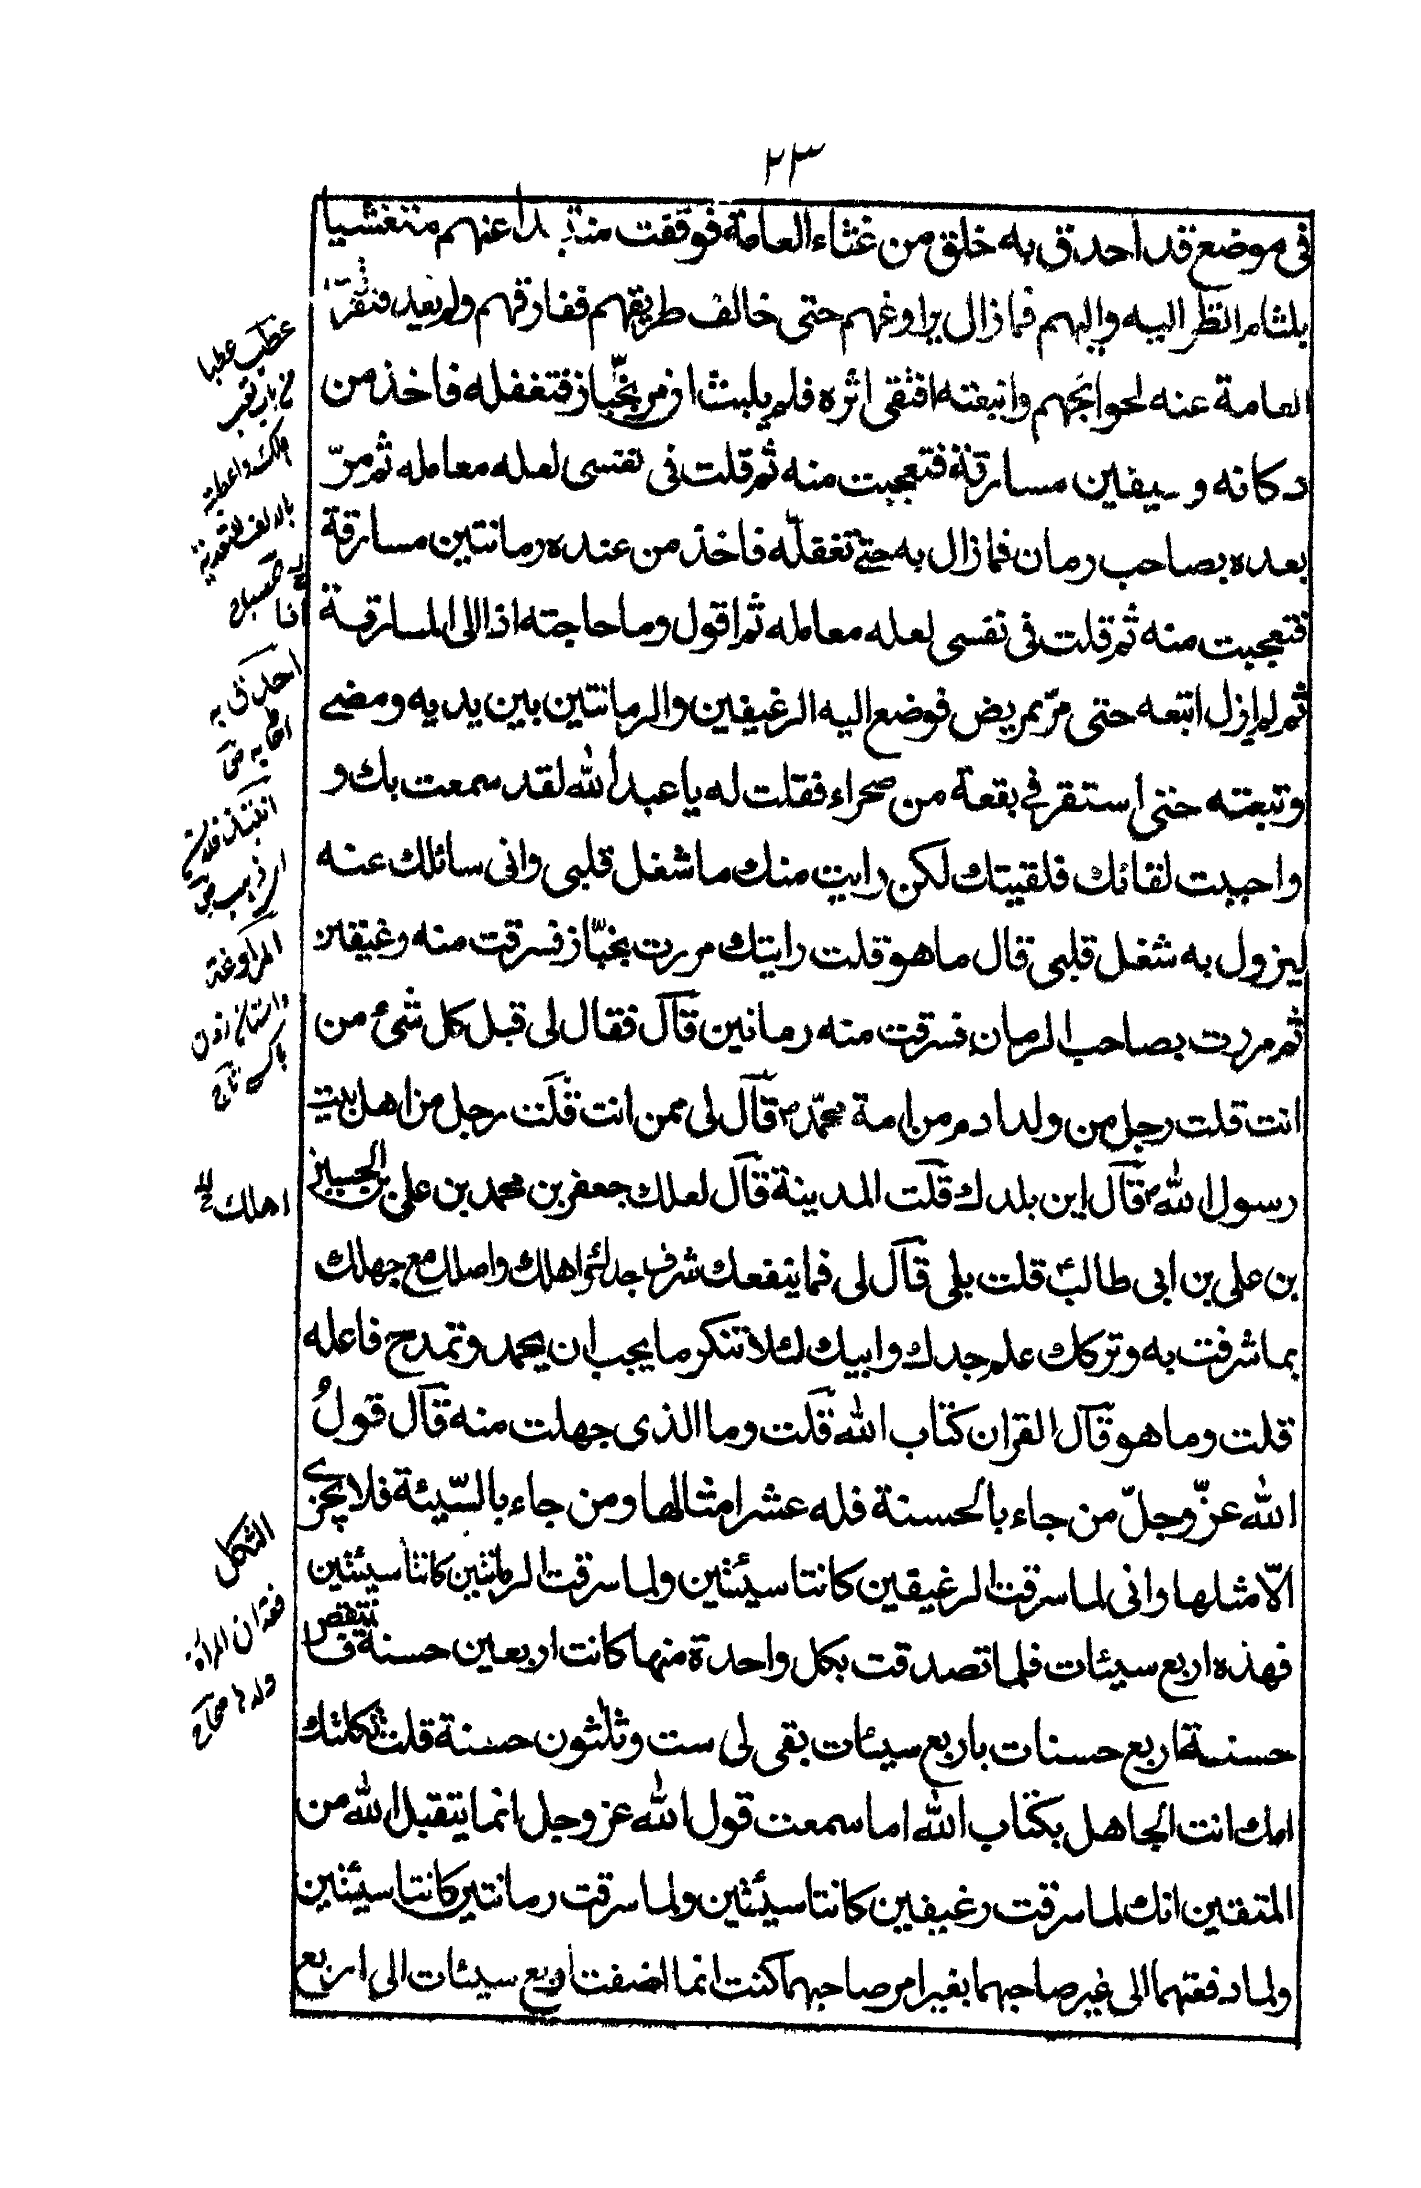 ٢٣
في موضع قد احدق به خلق من غثاء العامة فوقفت منتبذا عنهم متغشيا
بلثام انظر اليه واليهم فما زال يراوغهم حتى خالف طريقهم ففارقهم ولم يعد فتفرّقت
العامة عنه لحوائجهم واتبعته اقتفى اثره فلم يلبث ان مر بخبّاز فتغفله فاخذ من
دكانه رغيفين مسارقة فتعجبت منه ثم قلت في نفسى لعله معامله ثم مرّ
بعده بصاحب رمان فما زال به حتى تغفّله فاخذ من عنده رمانتين مسارقة
فتعجبت منه ثم قلت في نفسى لعله معامله ثم اقول وما حاجته اذا الى المسارقة
ثم لم ازل اتبعه حتى مرّ بمريض فوضع اليه الرغيفين والرمانتين بين يديه ومضى
وتبعته حتى استقر في بقعة من صحراء فقلت له يا عبد الله لقد سمعت بك و
واحببت لقائك فلقيتك لكن رايت منك ما شغل قلبى وانى سائلك عنه
ليزول به شغل قلبى قال ما هو قلت رايتك مررت بخبّاز فسرقت منه رغيفين
ثم مررت بصاحب الرمان فسرقت منه رمانين قال فقال لى قبل كل شئ من
انت قلت رجل من ولد ادم من امة محمّد ص قال لى ممن انت قلت رجل من اهل بيت
رسول الله ص قال اين بلدك قلت المدينة قال لعلك جعفر بن محمد بن على بن الحسين
بن على بن ابى طالب ع قلت بلى قال لى فما ينفعك شرف جدلئى اهلك واصلك مع جهلك
بما شرفت به وتركك علم جدك وابيك لئلا تنكر ما يجب ان يحمد وتمدح فاعله
قلت وما هو قال القران كتاب الله قلت وما الذى جهلت منه قال قول
الله عزّ وجلّ من جاء بالحسنة فله عشر امثالها ومن جاء بالسّيئة فلا يجزى
الّا مثلها وانى لما سرقت الرغيفين كانتا سيئتين ولما سرقت الرمانتين كانتا سيئتين
فهذه اربع سيئات فلما تصدقت بكل واحدة منها كانت اربعين حسنة فانتقص
حسنة اربع حسنات باربع سيئات بقى لى ست وثلثون حسنة قلت ثكلتك
امك انت الجاهل بكتاب الله اما سمعت قول الله عز وجل انما يتقبل الله من
المتقين انك لما سرقت رغيفين كانتا سيئتين ولما سرقت رمانتين كانتا سيئتين
ولما دفعتهما الى غير صاحبهما بغير امر صاحبهما كنت انما اضفت اربع سيئات الى اربع
عطب عطبا
احدق به
المراوغة
اهلك
الثكل
فقدان المراة
ولدها صحاح